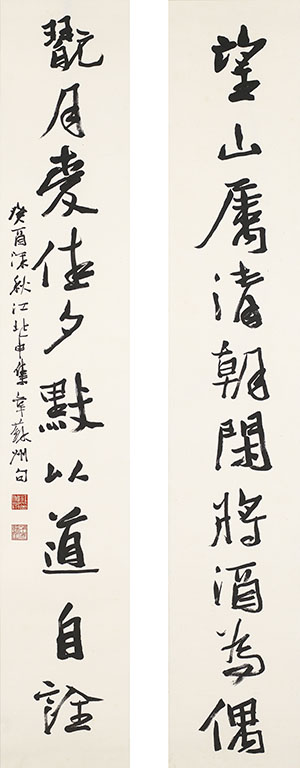 望山屬清朝閑將酒為偶
翫月愛佳夕默以道自詮
癸酉深秋江兆申集韋蘇州句